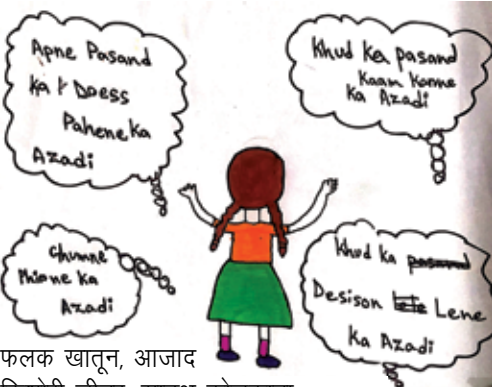 Apne Pasand
ka Dress
Pahene ka
Azadi
Khud ka pasand
Kaam Karne
Ka Azadi
Ghumne
Phirne Ka
Azadi
Khud ka pasand
Desison lele Lene
Ka Azadi
फलक खातून, आजाद